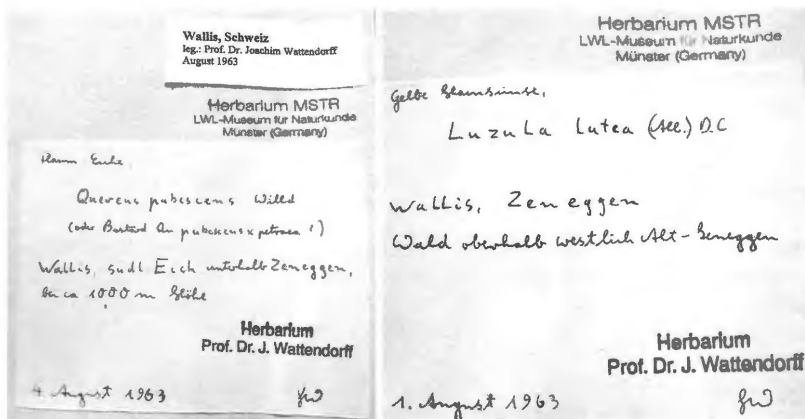 Wallis, Schweiz
leg.: Prof. Dr. Joachim Wattendorff
August 1963
Herbarium MSTR
LWL-Museum für Naturkunde
Münster (Germany)
Flaum Eiche,
Quercus pubescens Willd
(oder Bastard Qu pubescens x petraea !)
Wallis, südl Eich unterhalb Zeneggen,
bei ca 1000 m Höhe
Herbarium
Prof. Dr. J. Wattendorff
4. August 1963 JW
Herbarium MSTR
LWL-Museum für Naturkunde
Münster (Germany)
Gelbe Hainsimse,
Luzula lutea (All.) D.C
Wallis, Zeneggen
Wald oberhalb westlich Alt-Zeneggen
Herbarium
Prof. Dr. J. Wattendorff
1. August 1963 JW